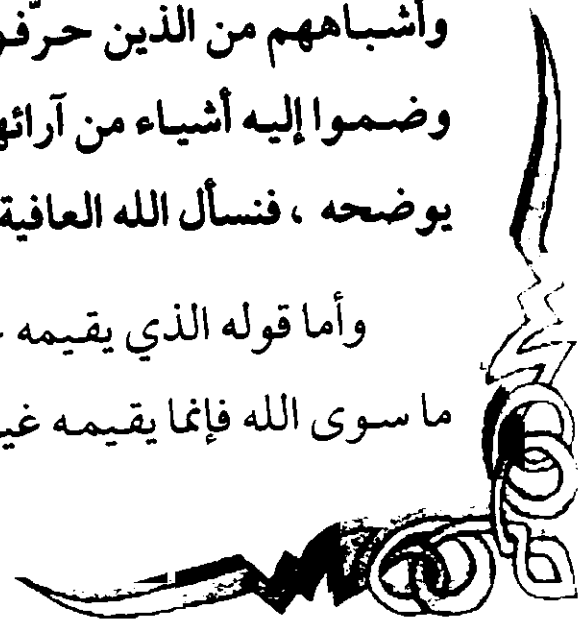 وأشباههم من الذين
وضموا إليه أشياء من
يوضحه ، فنسأل الله العافية
وأما قوله الذي يقيمه
ما سوى الله فإنما يقيمه